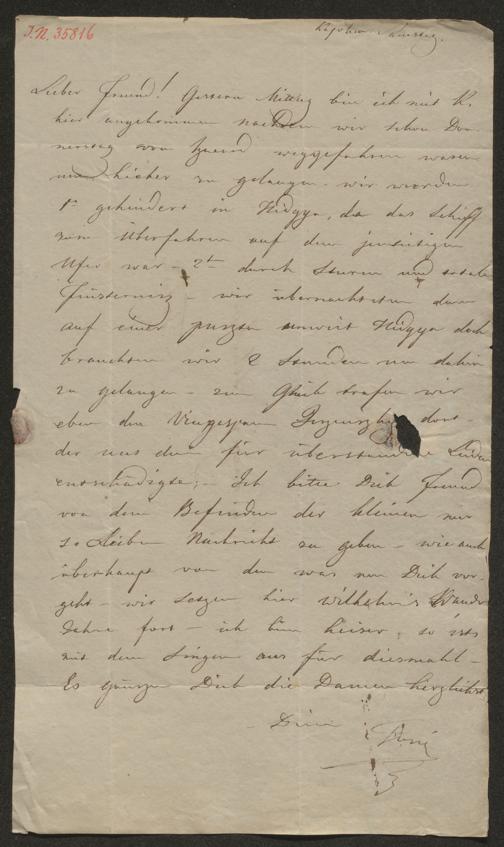 I.N. 35816
Lieber Freund! Gestern Mittag bin ich mit K.
hier angekommen nachdem wir schon Don-
nerstag von weggefahren waren
um hieher zu gelangen - wir wurden
1tens gehindert in Hidgya, da das Schiff
zum Überfahren auf dem jenseitigen
Ufer war - 2tens durch Sturm und totale
Finsterniss - wir übernachteten dann
auf einer puszta unweit Hidgya doch
brauchten wir 2 Stunden um dahin
zu gelangen - zum Glück trafen wir
eben den dort -
der uns dann für überstandene Leiden
entschädigte; - Ich bitte Dich Freund
von dem Befinden der kleinen mir
so Lieben Nachricht zu geben - wie auch
überhaupt von dem was um Dich vor-
geht - wir setzen hier Wilhelm's Wander
Jahre fort - ich bin heiser, so ists
mit dem Singen aus für diesmahl -
Es grüszen Dich die Damen herzlichst
Dein